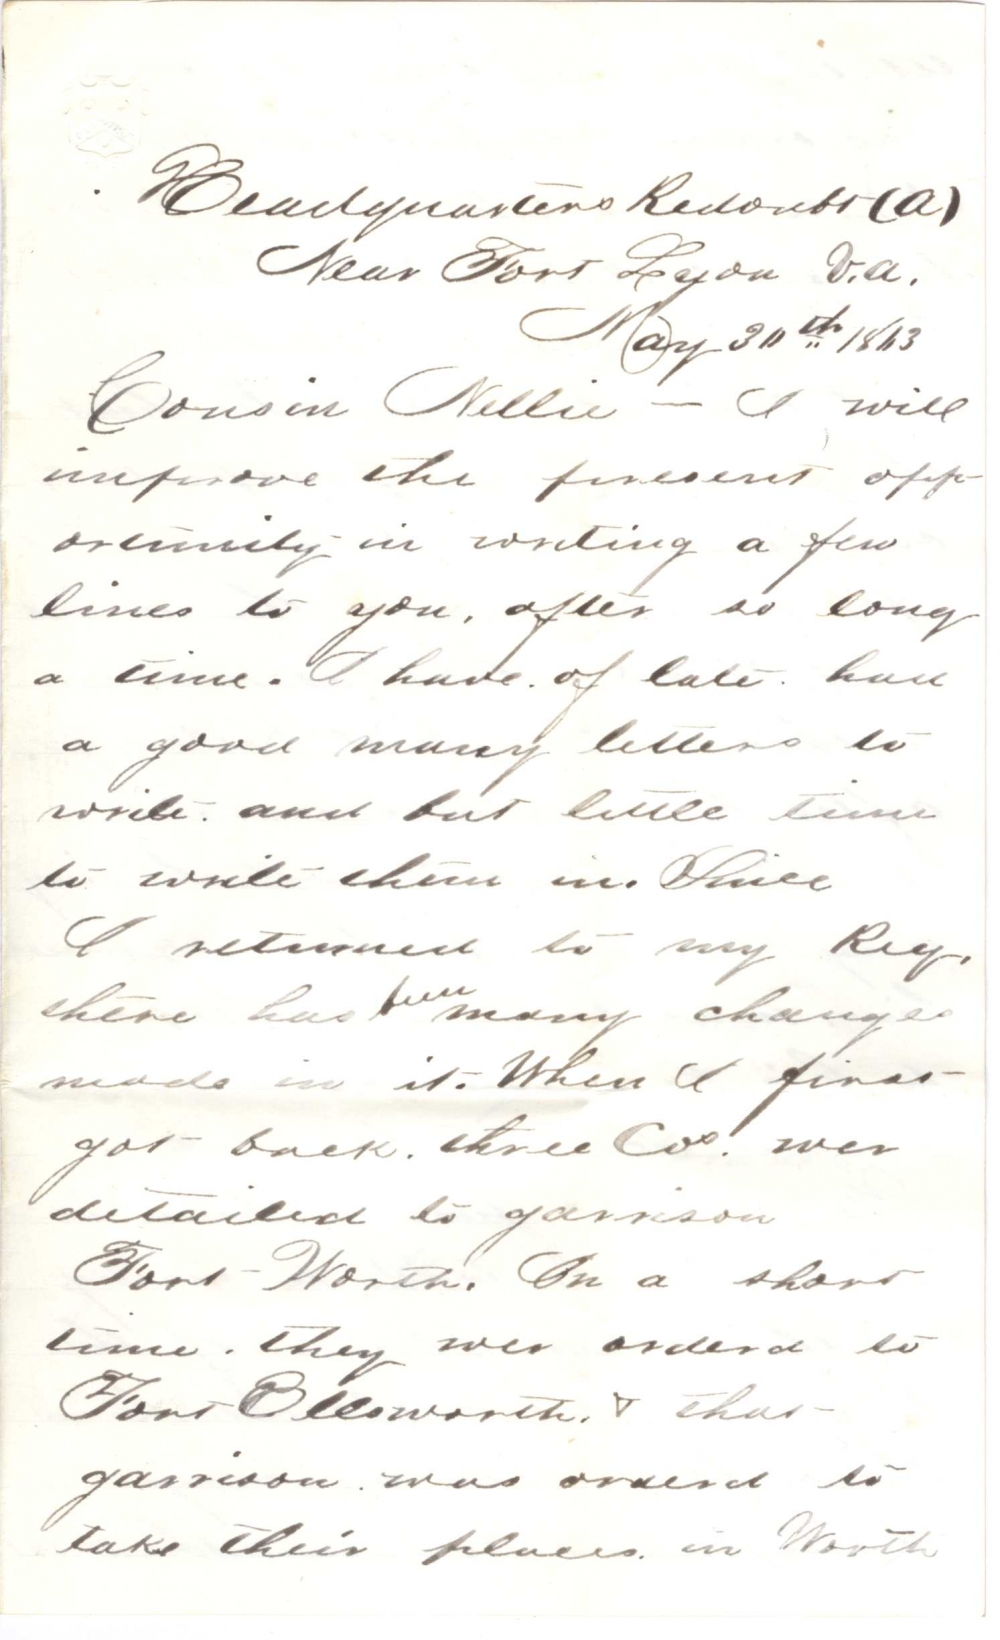 Headquarters Redoubt (A)
Near Fort Lyon V.a.
May 30th 1863
Cousin Nellie — I will
improve the present opp-
ortunity in writing a few
lines to you, after so long
a time. I have. of late. had
a good many letters to
write. and but little time
to write them in. Since
I returned to my Reg.
there has been many changes
made in it. When I first
got back. three Cos. wer
detailed to garrison
Fort Worth. In a short
time. they wer orderd to
Fort Ellsworth. & that
garrison was orderd to
take their places. in Worth